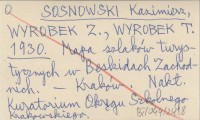 SOSNOWSKI Kazimierz,
WYROBEK Z., WYROBEK T.
1930. Mapa szlaków turys-
tycznych w Beskidach Zachod-
nich. — Kraków. Nakł.
Kuratorium Okręgu Szkolnego
Krakowskiego.